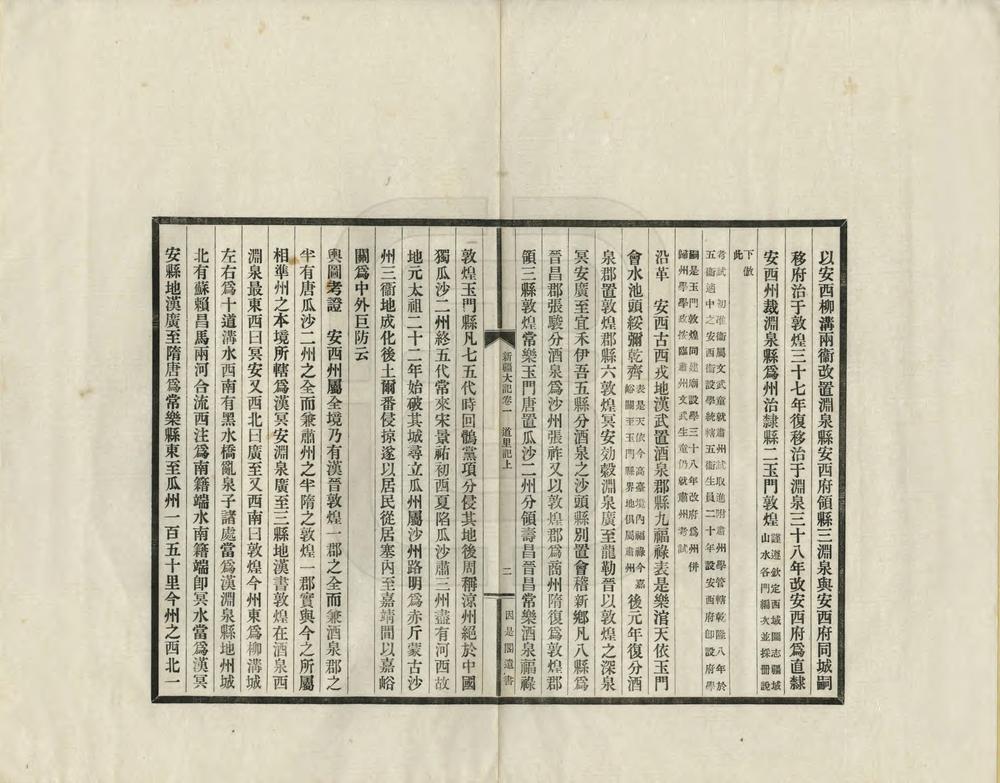 以安西柳溝兩衞改置淵泉縣安西府領縣三淵泉與安西府同城嗣
移府治于敦煌三十七年復移治于淵泉三十八年改安西府爲直隸
安西州裁淵泉縣爲州治隸縣二玉門敦煌謹遵欽定西域圖志疆域
山水各門編次並採冊說
下倣
此
考試初准衞屬文武童就肅州試取進附肅州學管轄乾隆八年於
五衞適中之安西衞設學統轄五衞生員二十年設安西府卽設府學
嗣是玉門敦煌同建廟設學三十八年改府爲州併
歸州學學政按臨肅州文武生童仍就肅州考試
沿革 安西古西戎地漢武置酒泉郡縣九福祿表是樂涫天依玉門
會水池頭綏彌乾齊表是天依今高臺境內福祿今嘉
峪關至玉門縣界地俱屬肅州後元年復分酒
泉郡置敦煌郡縣六敦煌冥安効穀淵泉廣至龍勒晉以敦煌之深泉
冥安廣至宜禾伊吾五縣分酒泉之沙頭縣別置會稽新鄉凡八縣爲
晉昌郡張駿分酒泉爲沙州張祚又以敦煌郡爲商州隋復爲敦煌郡
領三縣敦煌常樂玉門唐置瓜沙二州分領壽昌晉昌常樂酒泉福祿
新疆大記卷一 道里記上 二 因是閣遺書
敦煌玉門縣凡七五代時回鶻黨項分侵其地後周稱涼州絕於中國
獨瓜沙二州終五代常來宋景祐初西夏陷瓜沙肅三州盡有河西故
地元太祖二十二年始破其城尋立瓜州屬沙州路明爲赤斤蒙古沙
州三衞地成化後土爾番侵掠遂以居民從居塞內至嘉靖間以嘉峪
關爲中外巨防云
輿圖考證 安西州屬全境乃有漢晉敦煌一郡之全而兼酒泉郡之
半有唐瓜沙二州之全而兼肅州之半隋之敦煌一郡實與今之所屬
相準州之本境所轄爲漢冥安淵泉廣至三縣地漢書敦煌在酒泉西
淵泉最東西曰冥安又西北曰廣至又西南曰敦煌今州東爲柳溝城
左右爲十道溝水西南有黑水橋亂泉子諸處當爲漢淵泉縣地州城
北有蘇賴昌馬兩河合流西注爲南籍端水南籍端卽冥水當爲漢冥
安縣地漢廣至隋唐爲常樂縣東至瓜州一百五十里今州之西北一